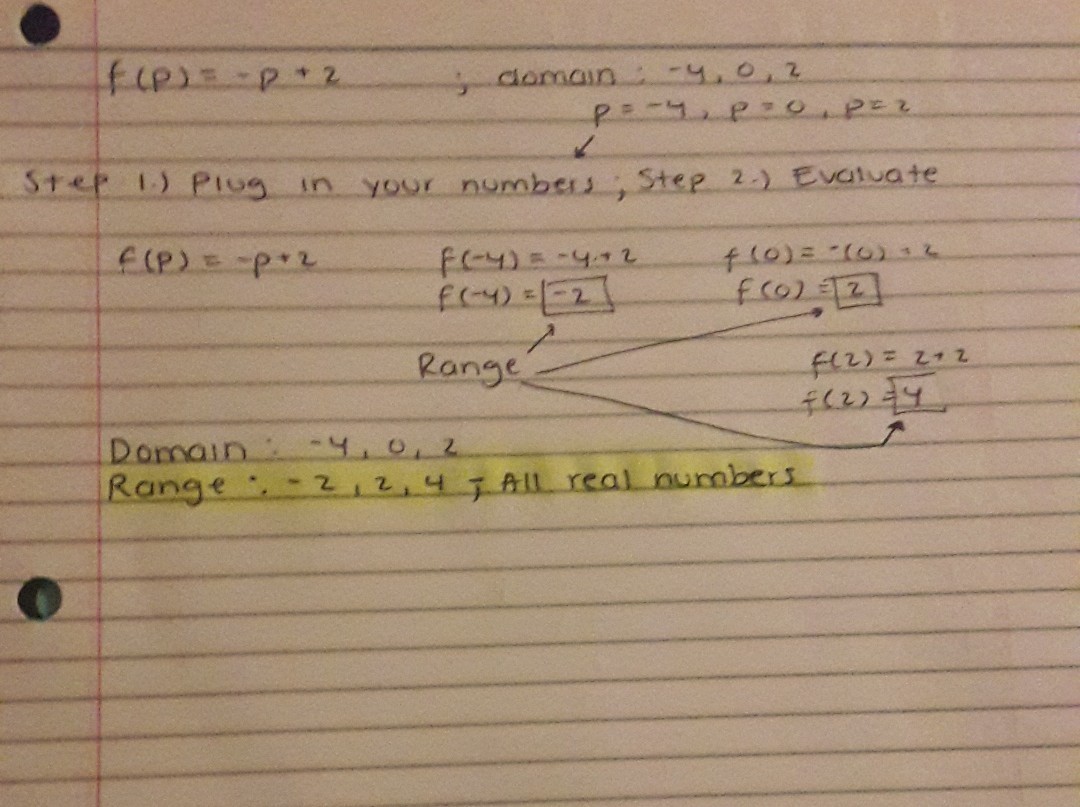 f(p) = -p + 2 ; domain : -4, 0, 2
p = -4, p = 0, p = 2
Step 1.) Plug in your numbers ; Step 2.) Evaluate
f(p) = -p+2 f(-4) = -4+2 f(0) = -(0) + 2
f(-4) = -2 f(0) = 2
Range f(2) = 2+2
f(2) = 4
Domain : -4, 0, 2
Range : -2, 2, 4 ; All real numbers